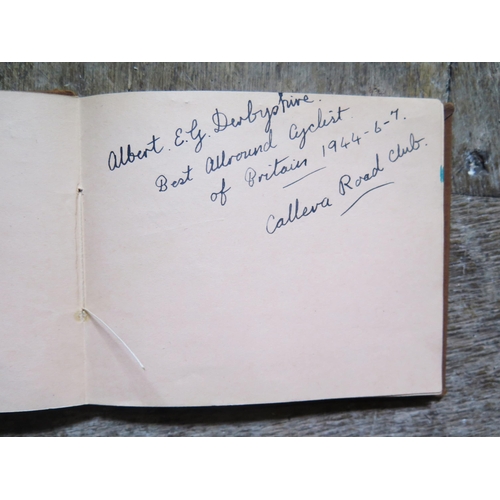 Albert. E.G. Derbyshire.
Best Allround Cyclist
of Britain 1944-6-7.
Calleva Road Club.